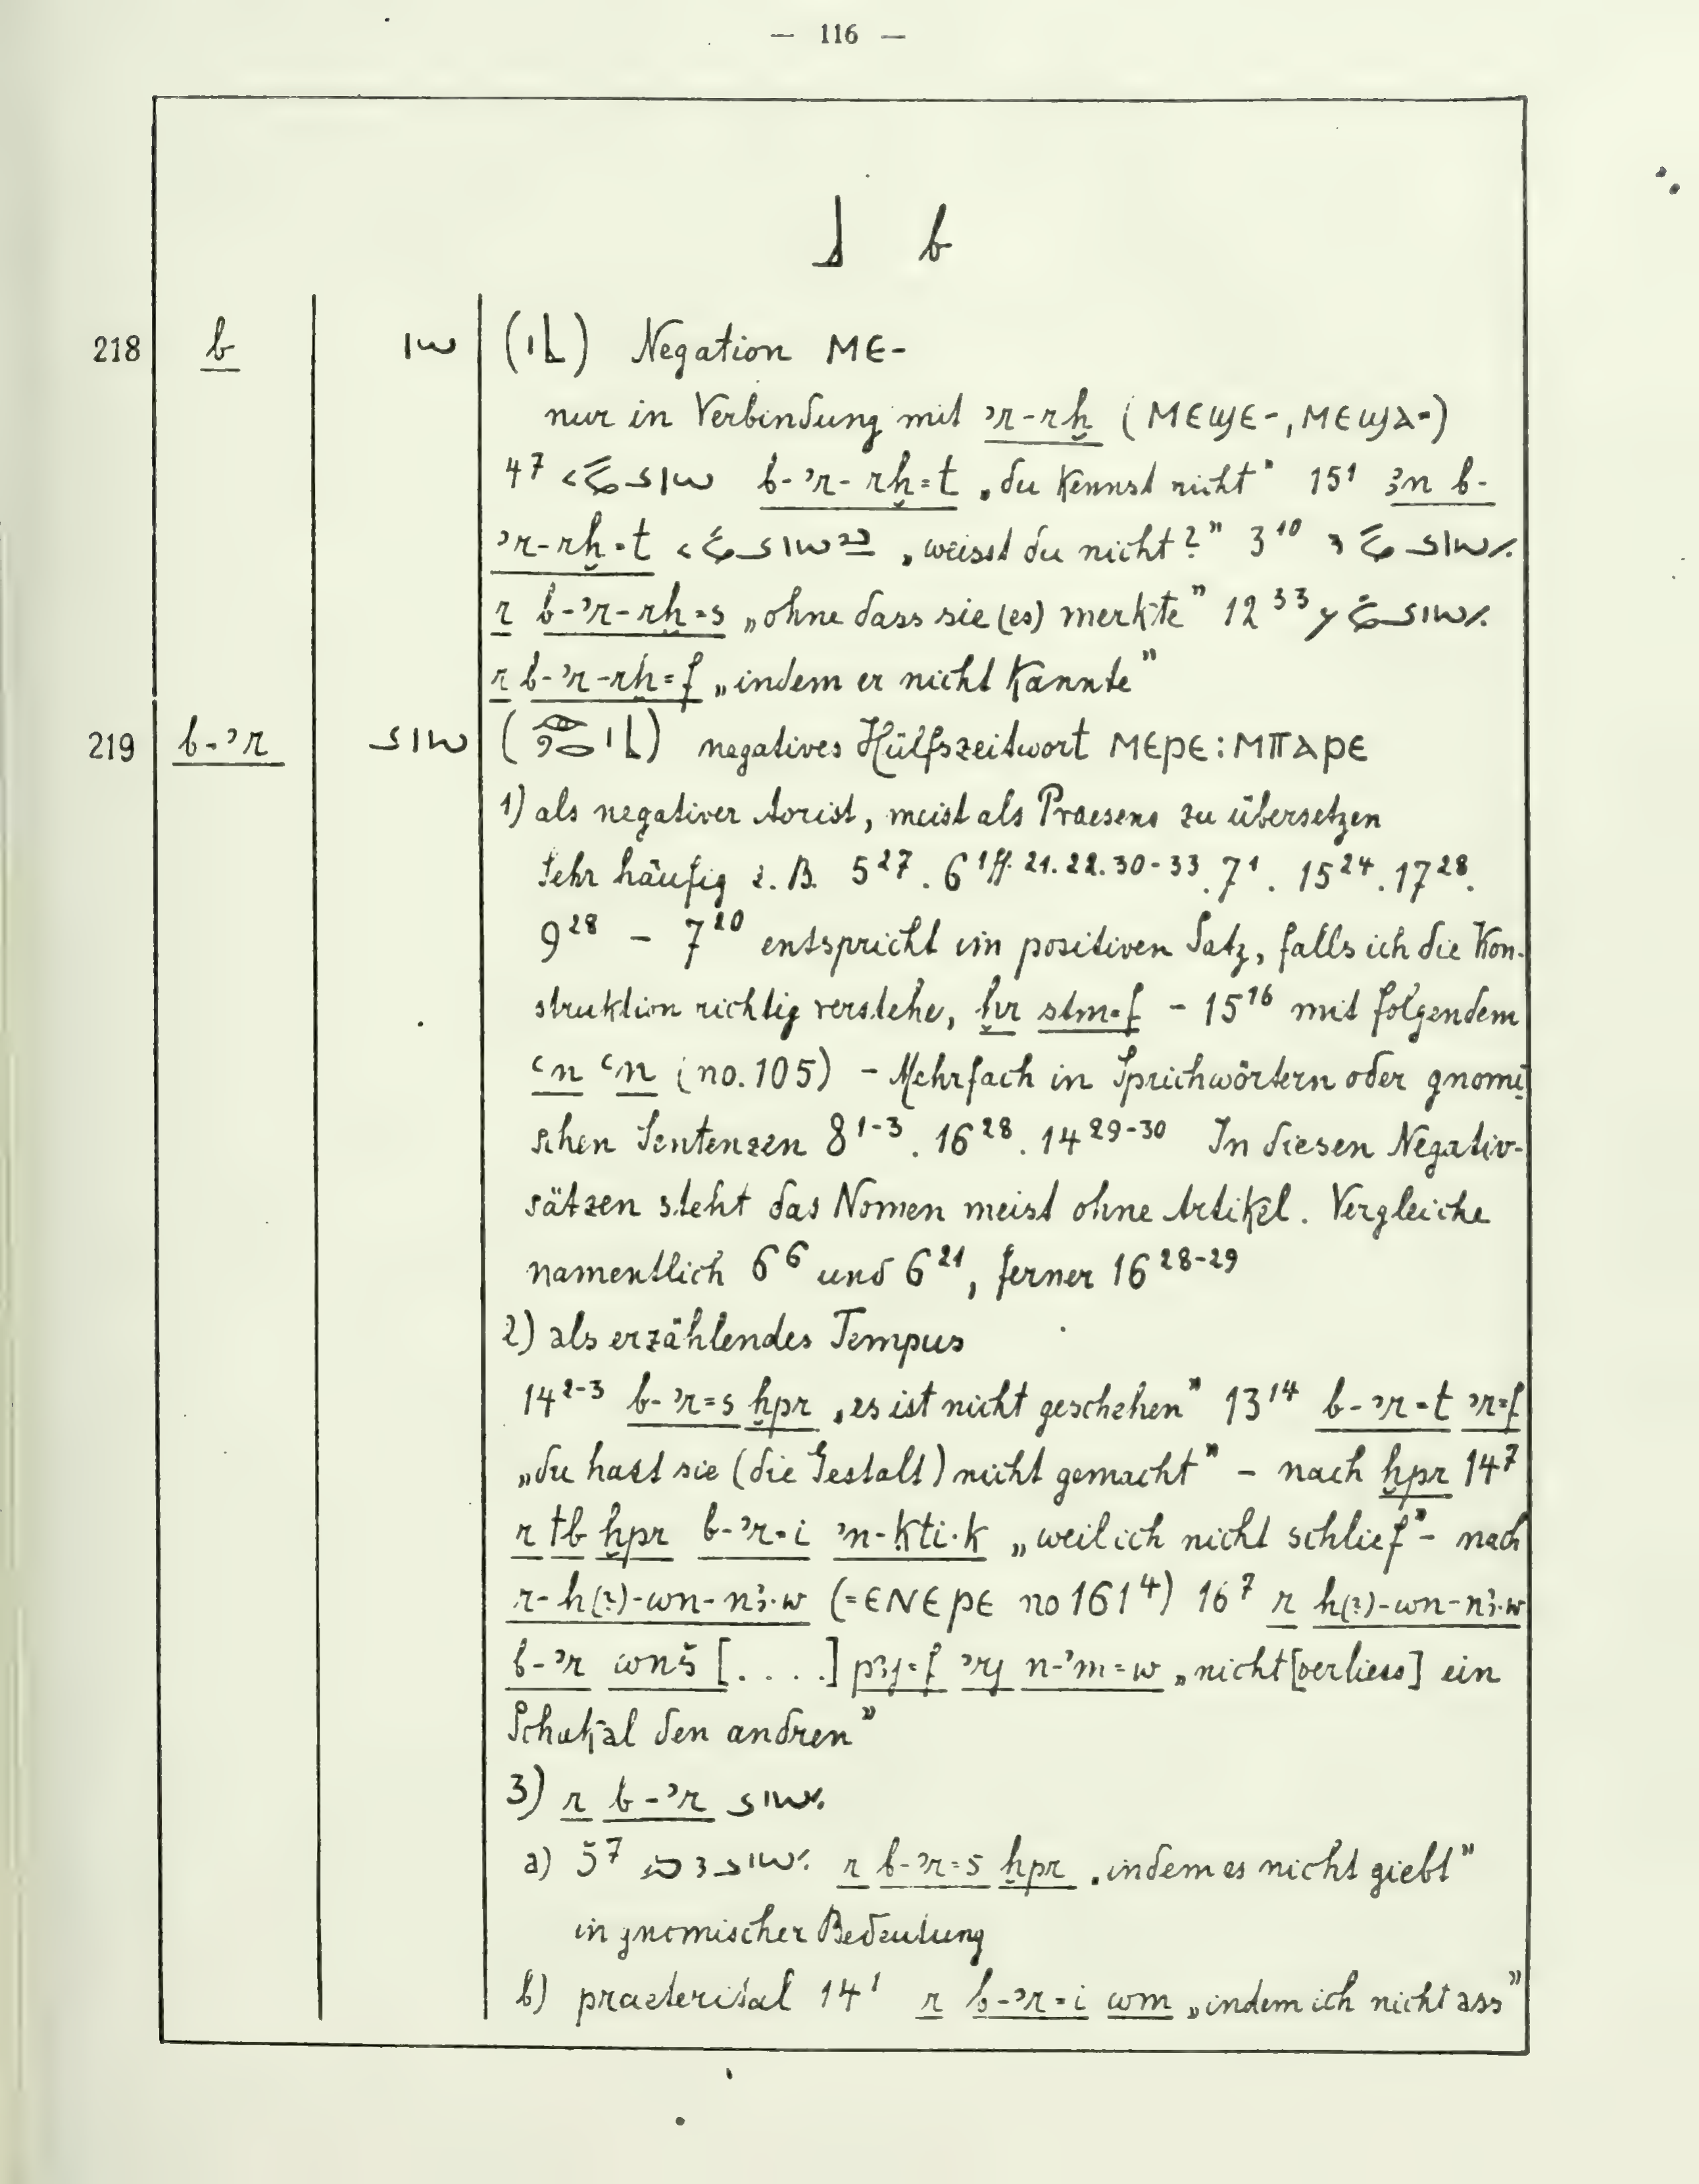 — 116 —
b
218 b (  ) Negation ⲘⲈ-
nur in Verbindung mit ʾr-rḫ (ⲘⲈϢⲈ-, ⲘⲈϢⲀ⸗)
4⁷ b-ʾr-rḫ=t „du kennst nicht" 15¹ ꜣn b-
ʾr-rḫ=t „weisst du nicht?" 3¹⁰
r b-ʾr-rḫ=s „ohne dass sie (es) merkte" 12³³
r b-ʾr-rḫ=f „indem er nicht kannte"
219 b-ʾr (  ) negatives Hülfszeitwort ⲘⲈⲢⲈ : ⲘⲠⲀⲢⲈ
1) als negativer Aorist, meist als Praesens zu übersetzen
Sehr häufig z. B. 5²⁷. 6¹ᶠᶠ· ²¹· ²²· ³⁰⁻³³. 7¹. 15²⁴. 17²⁸.
9²⁸ – 7²⁰ entspricht im positiven Satz, falls ich die Kon-
struktion richtig verstehe, ḫr stm=f – 15¹⁶ mit folgendem
ꜥn ꜥn (no. 105) – Mehrfach in Sprichwörtern oder gnomi
schen Sentenzen 8¹⁻³. 16²⁸. 14²⁹⁻³⁰ In diesen Negativ-
sätzen steht das Nomen meist ohne Artikel. Vergleiche
namentlich 6⁶ und 6²¹, ferner 16²⁸⁻²⁹
2) als erzählendes Tempus
14²⁻³ b-ʾr=s ḫpr „es ist nicht geschehen" 13¹⁴ b-ʾr=t ʾr=f
„du hast sie (die Gestalt) nicht gemacht" – nach ḫpr 14⁷
r tb ḫpr b-ʾr=i ʾn-ḳti·k „weil ich nicht schlief" – nach
r-h(?)-wn-nꜣ·w (=ⲈⲚⲈⲢⲈ no 161⁴) 16⁷ r h(?)-wn-nꜣ·w
b-ʾr wnš [. . . .] pꜣj=f ʾrj n-ʾm=w „nicht [verliess] ein
Schakal den andren"
3) r b-ʾr
a) 5⁷ r b-ʾr=s ḫpr „indem es nicht giebt"
in gnomischer Bedeutung
b) praeterital 14¹ r b-ʾr=i wm „indem ich nicht ass"